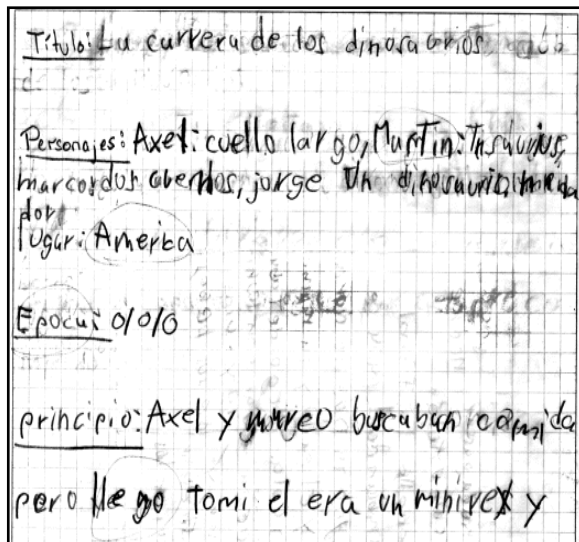 Título: La carrera de los dinosaurios
Personajes: Axel: cuello largo, Martin:
marco: dus jorge un
dor
lugar: America
Epoca: 0/0/0
principio: Axel y marco buscaban comida
pero llego tomi el era un minirex y